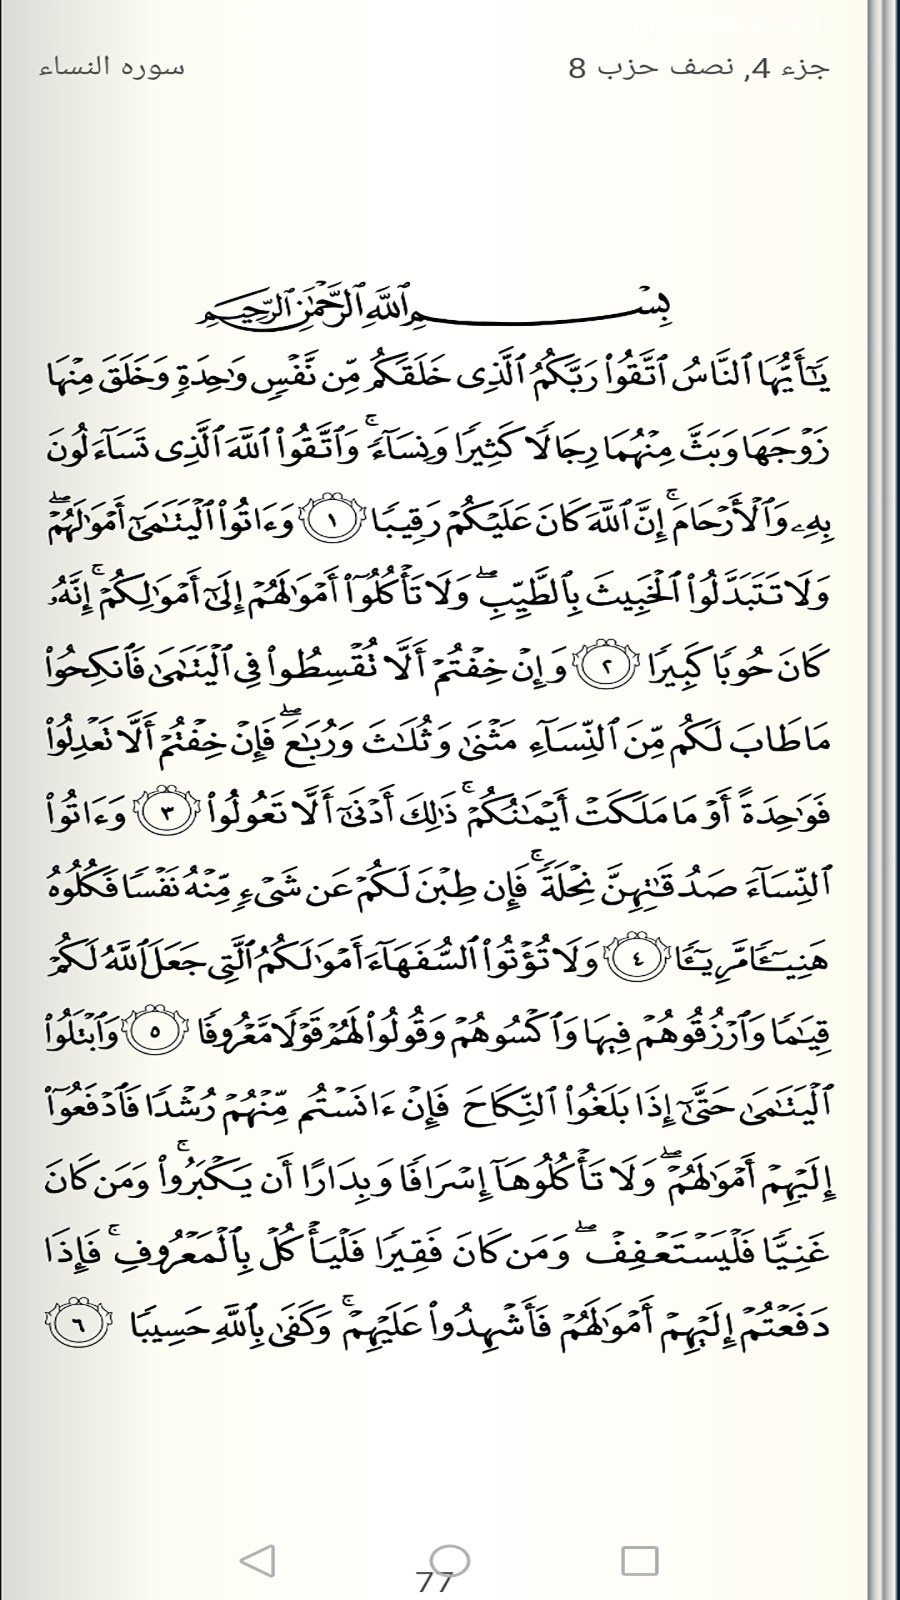 جزء 4, نصف حزب 8
سوره النساء
بِسْمِ ٱللَّهِ ٱلرَّحْمَٰنِ ٱلرَّحِيمِ
يَٰٓأَيُّهَا ٱلنَّاسُ ٱتَّقُوا۟ رَبَّكُمُ ٱلَّذِى خَلَقَكُم مِّن نَّفْسٍ وَٰحِدَةٍ وَخَلَقَ مِنْهَا
زَوْجَهَا وَبَثَّ مِنْهُمَا رِجَالًا كَثِيرًا وَنِسَآءً ۚ وَٱتَّقُوا۟ ٱللَّهَ ٱلَّذِى تَسَآءَلُونَ
بِهِۦ وَٱلْأَرْحَامَ ۚ إِنَّ ٱللَّهَ كَانَ عَلَيْكُمْ رَقِيبًا ١ وَءَاتُوا۟ ٱلْيَتَٰمَىٰٓ أَمْوَٰلَهُمْ ۖ
وَلَا تَتَبَدَّلُوا۟ ٱلْخَبِيثَ بِٱلطَّيِّبِ ۖ وَلَا تَأْكُلُوٓا۟ أَمْوَٰلَهُمْ إِلَىٰٓ أَمْوَٰلِكُمْ ۚ إِنَّهُۥ
كَانَ حُوبًا كَبِيرًا ٢ وَإِنْ خِفْتُمْ أَلَّا تُقْسِطُوا۟ فِى ٱلْيَتَٰمَىٰ فَٱنكِحُوا۟
مَا طَابَ لَكُم مِّنَ ٱلنِّسَآءِ مَثْنَىٰ وَثُلَٰثَ وَرُبَٰعَ ۖ فَإِنْ خِفْتُمْ أَلَّا تَعْدِلُوا۟
فَوَٰحِدَةً أَوْ مَا مَلَكَتْ أَيْمَٰنُكُمْ ۚ ذَٰلِكَ أَدْنَىٰٓ أَلَّا تَعُولُوا۟ ٣ وَءَاتُوا۟
ٱلنِّسَآءَ صَدُقَٰتِهِنَّ نِحْلَةً ۚ فَإِن طِبْنَ لَكُمْ عَن شَىْءٍ مِّنْهُ نَفْسًا فَكُلُوهُ
هَنِيٓـًٔا مَّرِيٓـًٔا ٤ وَلَا تُؤْتُوا۟ ٱلسُّفَهَآءَ أَمْوَٰلَكُمُ ٱلَّتِى جَعَلَ ٱللَّهُ لَكُمْ
قِيَٰمًا وَٱرْزُقُوهُمْ فِيهَا وَٱكْسُوهُمْ وَقُولُوا۟ لَهُمْ قَوْلًا مَّعْرُوفًا ٥ وَٱبْتَلُوا۟
ٱلْيَتَٰمَىٰ حَتَّىٰٓ إِذَا بَلَغُوا۟ ٱلنِّكَاحَ فَإِنْ ءَانَسْتُم مِّنْهُمْ رُشْدًا فَٱدْفَعُوٓا۟
إِلَيْهِمْ أَمْوَٰلَهُمْ ۖ وَلَا تَأْكُلُوهَآ إِسْرَافًا وَبِدَارًا أَن يَكْبَرُوا۟ ۚ وَمَن كَانَ
غَنِيًّا فَلْيَسْتَعْفِفْ ۖ وَمَن كَانَ فَقِيرًا فَلْيَأْكُلْ بِٱلْمَعْرُوفِ ۚ فَإِذَا
دَفَعْتُمْ إِلَيْهِمْ أَمْوَٰلَهُمْ فَأَشْهِدُوا۟ عَلَيْهِمْ ۚ وَكَفَىٰ بِٱللَّهِ حَسِيبًا ٦
77